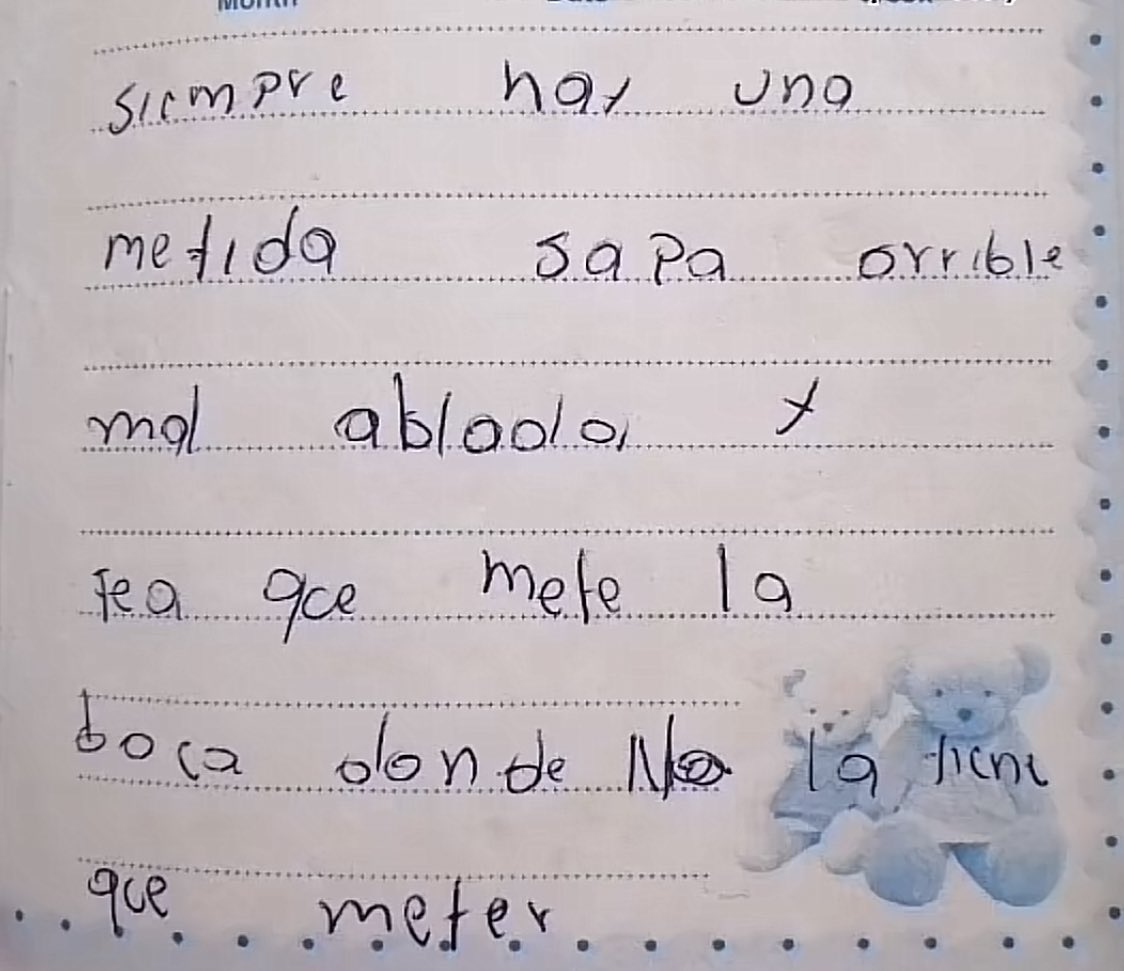 Month
siempre hay una
metida sapa orrible
mal ablada y
fea qce mete la
boca donde No la tiene
qce meter